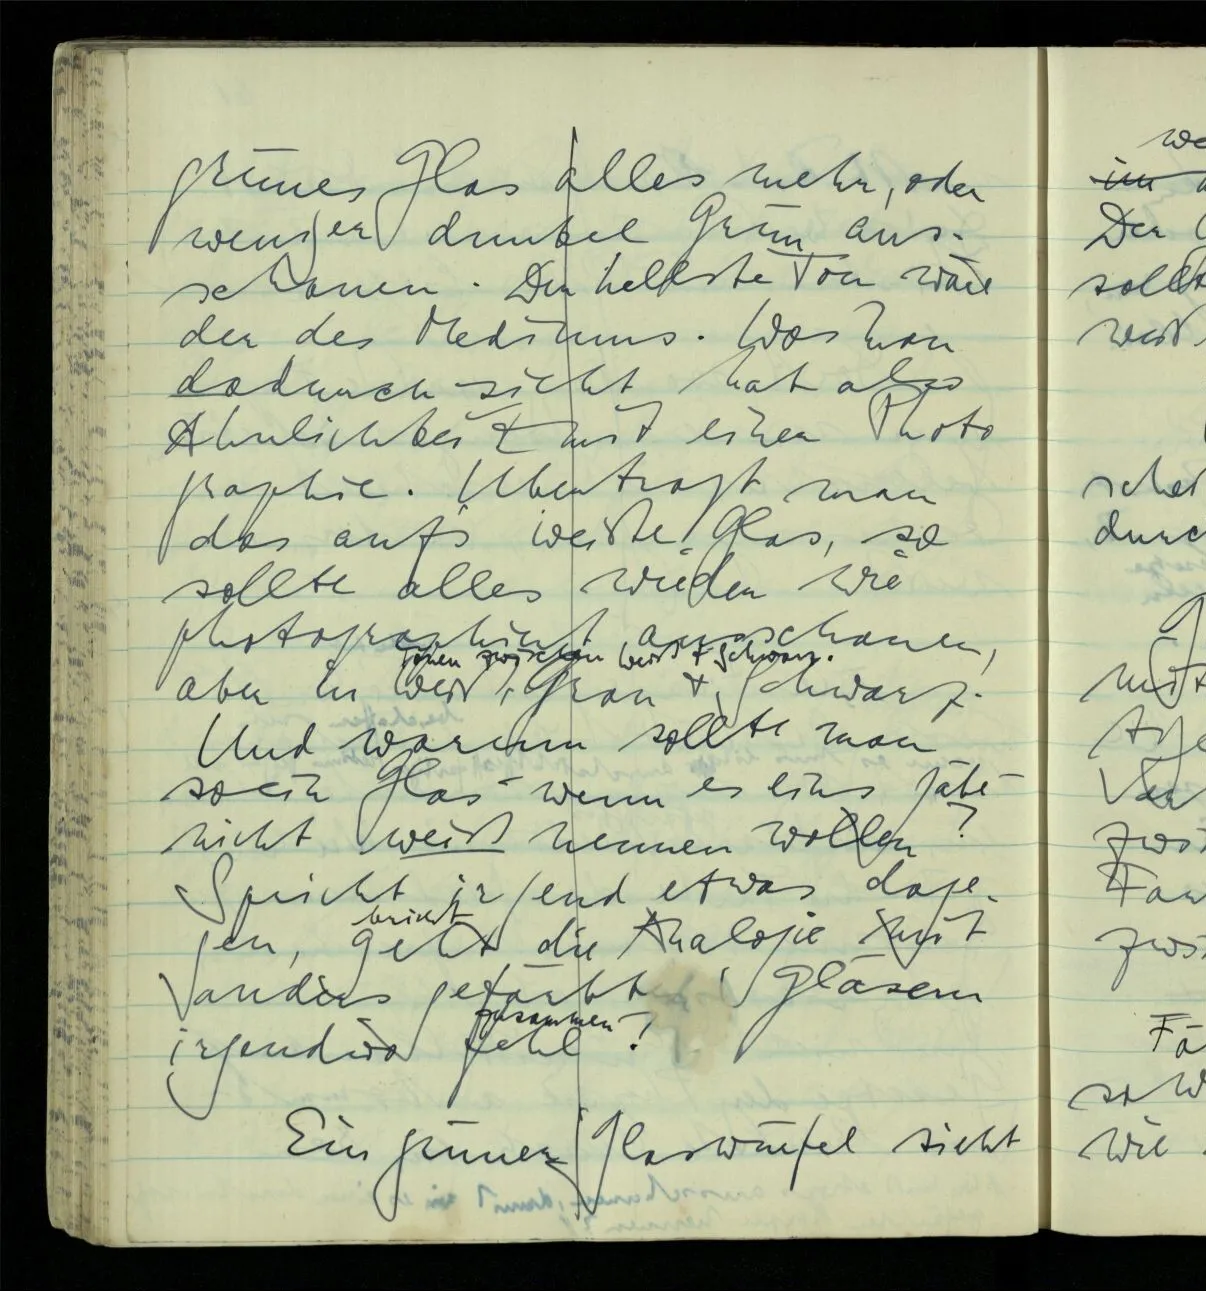 grünes Glas alles mehr, oder
weniger dunkel Grün aus-
schauen. Der hellste Ton wäre
der des Mediums. Was man
dadurch sieht hat also
Ähnlichkeit mit einer Photo
graphie. Überträgt man
das auf's weiße Glas, so
sollte alles wieder wie
photographiert ausschauen,
Tönen zwischen Weiß & Schwarz.
aber in Weiß, Grau & Schwarz.
Und warum sollte man
so ein Glas – wenn es eins gäbe –
nicht weiß nennen wollen?
Spricht irgend etwas dage-
bricht
gen, geht die Analogie mit
anders gefärbt Gläsern
zusammen?
irgendwo fehl?
Ein grüner Glaswürfel sieht
we
im
Der
sollt
weiß
schei
durc
mit
zwi
Far
zwi
Fä
so w
wie